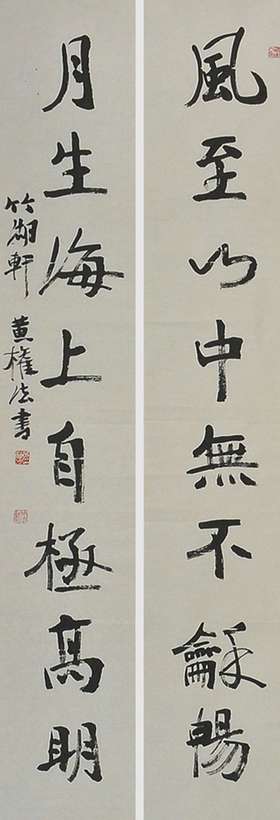 風至山中無不龢暢
月生海上自極高明
竹湖軒 黄權法書